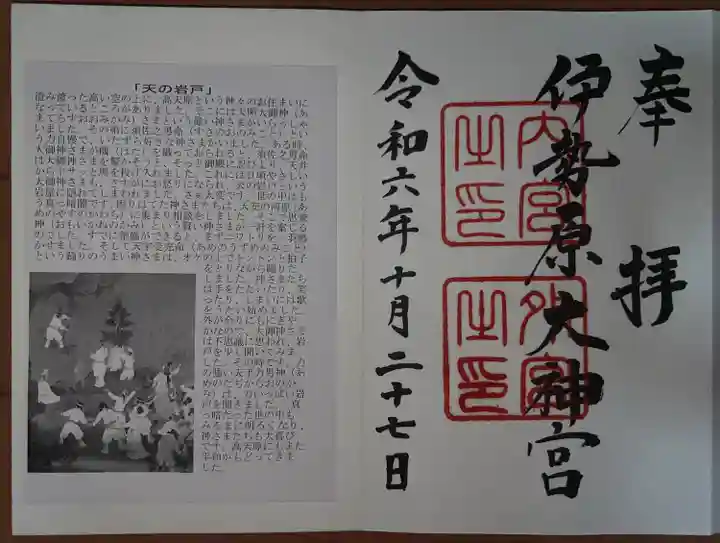 奉拝
伊勢原大神宮
内宮
之印
外宮
之印
令和六年十月二十七日
「天の岩戸」
澄み渡った高い空の上に、高天原という神々のお住まいに
なっているところがありました。そこには天照大御神（あ
まてらすおおみかみ）さまという尊い神さまがいらっしゃ
いました。その弟に須佐之男命（すさのおのみこと）とい
う力自慢で、いたずら好きな神さまがいました。ある時、
大御神さまが機（はた）を織っておられると、須佐之男命
は大御神さまを驚かそうと、そっと御殿に忍びより、天井
からドサッと馬を投げ入れました。これには日頃やさしい
大御神さまも、さすがにお怒りになられ、天の岩戸という
岩屋に隠れてしまわれました。さぁ大変です。世の中はも
う真っ暗闇です。困りはてた神さまたちは、天安の河原（あ
めのやすのかわら）に集まり相談をしました。そこで思兼
神（おもいかねのかみ）という賢い神さまが一計を案じる
のでした。すでに準備ができると、まずニワトリを一斉鳴
かせました。そして天宇受売命（あめのうずめのみこと）
という踊りのうまい神さまは、オケの上でトントンと拍子
をとりながら踊りだ
しました。神さまたち
は手をたたいたり、笑
ったり、しまいには歌
をうたい始めました。
外が余りにもにぎや
かなので、大御神さま
は不思議に思われ、岩
戸を少し開いてみま
した。その時です。力
の強い天手力男神（あ
めのたぢからおのか
み）は、力いっぱい岩
戸を開きました。真
っ暗だった世の中も
みるまに明るくなり、
神さまたちも大喜び
です。高天原にもまた
平和がもどってきま
した。